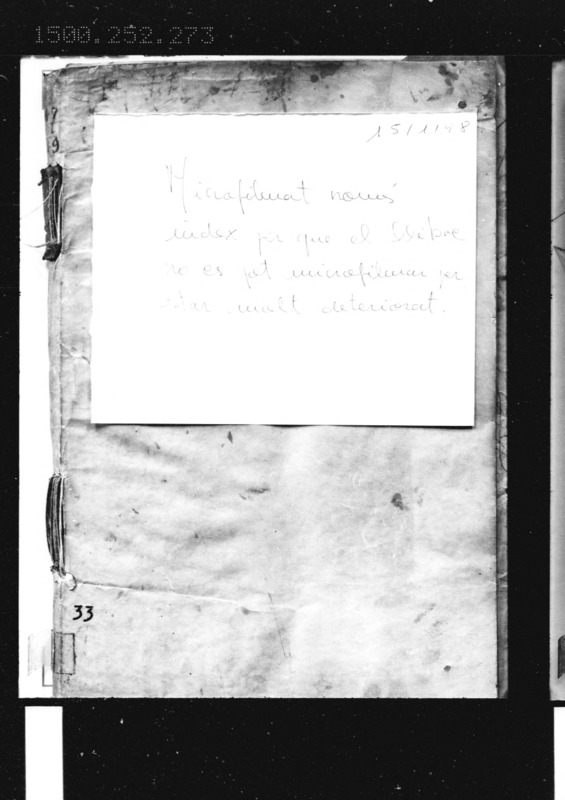 1500.252.273
15/1/98
Microfilmat només
index per que el llibre
no es pot microfilmar per
estar molt deteriorat.
33